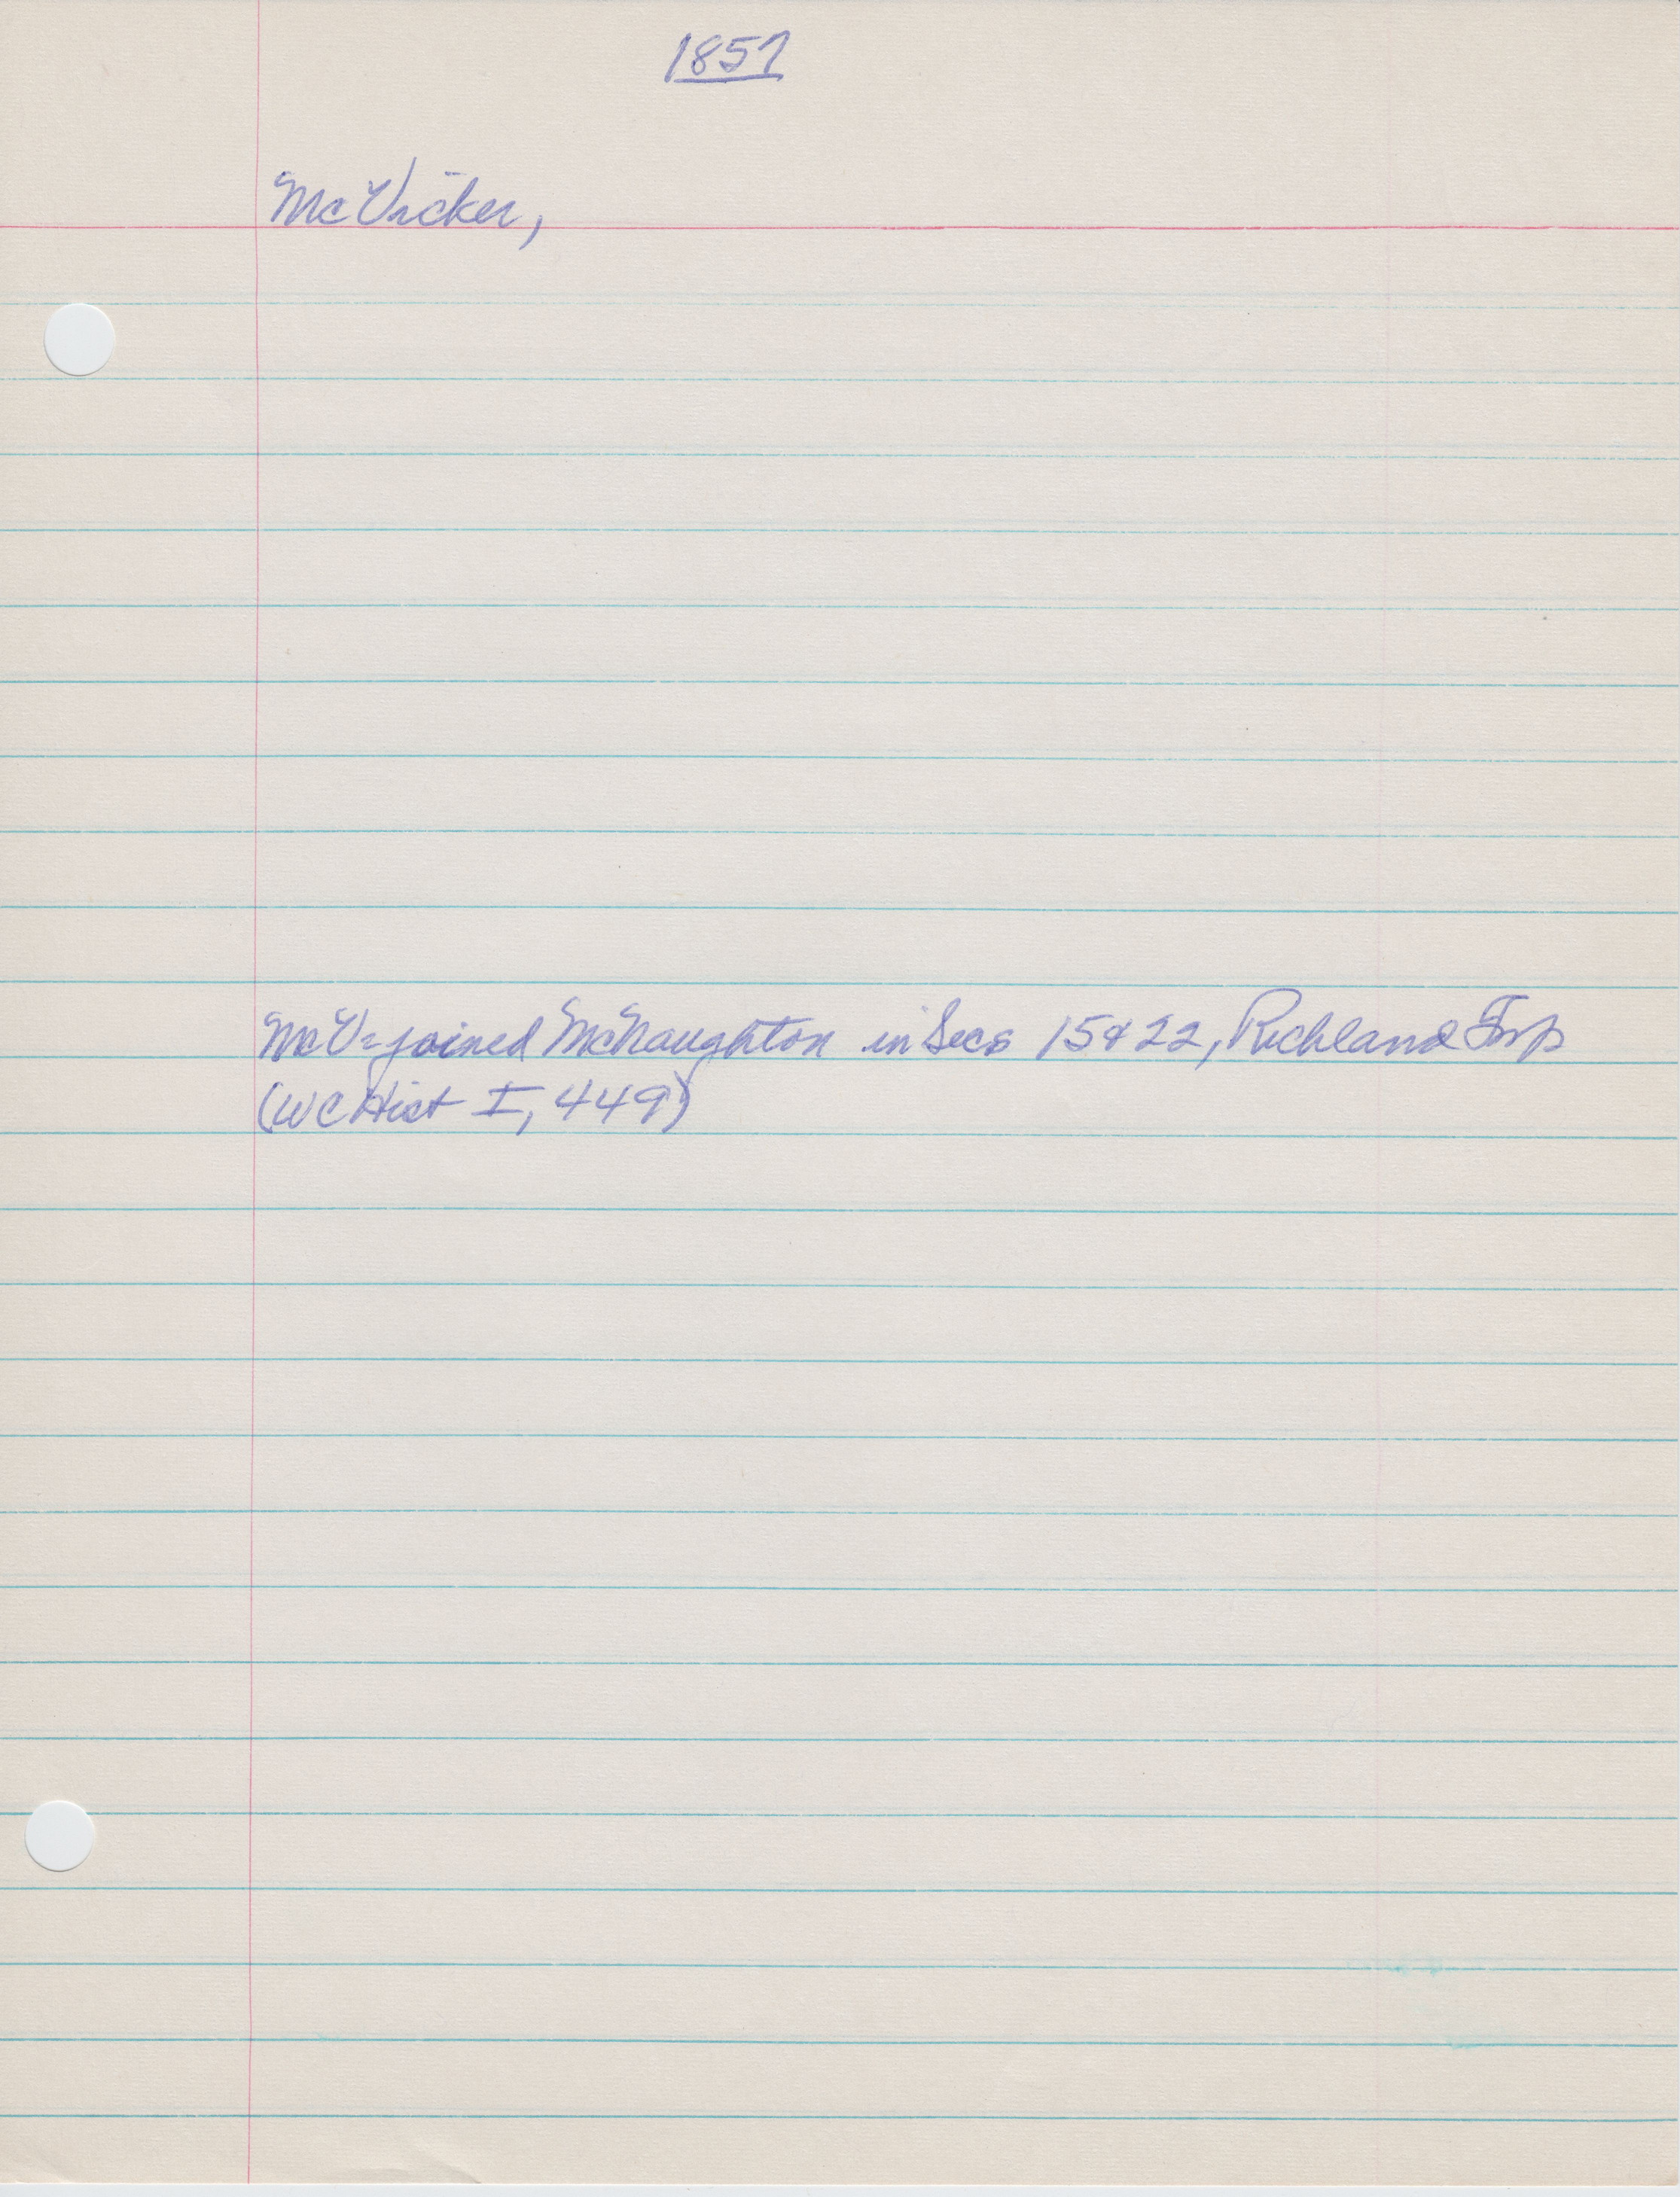 1857
McVicker,
McV- joined McNaughton in Secs 15 & 22, Richland Twp
(WC Hist I, 449)